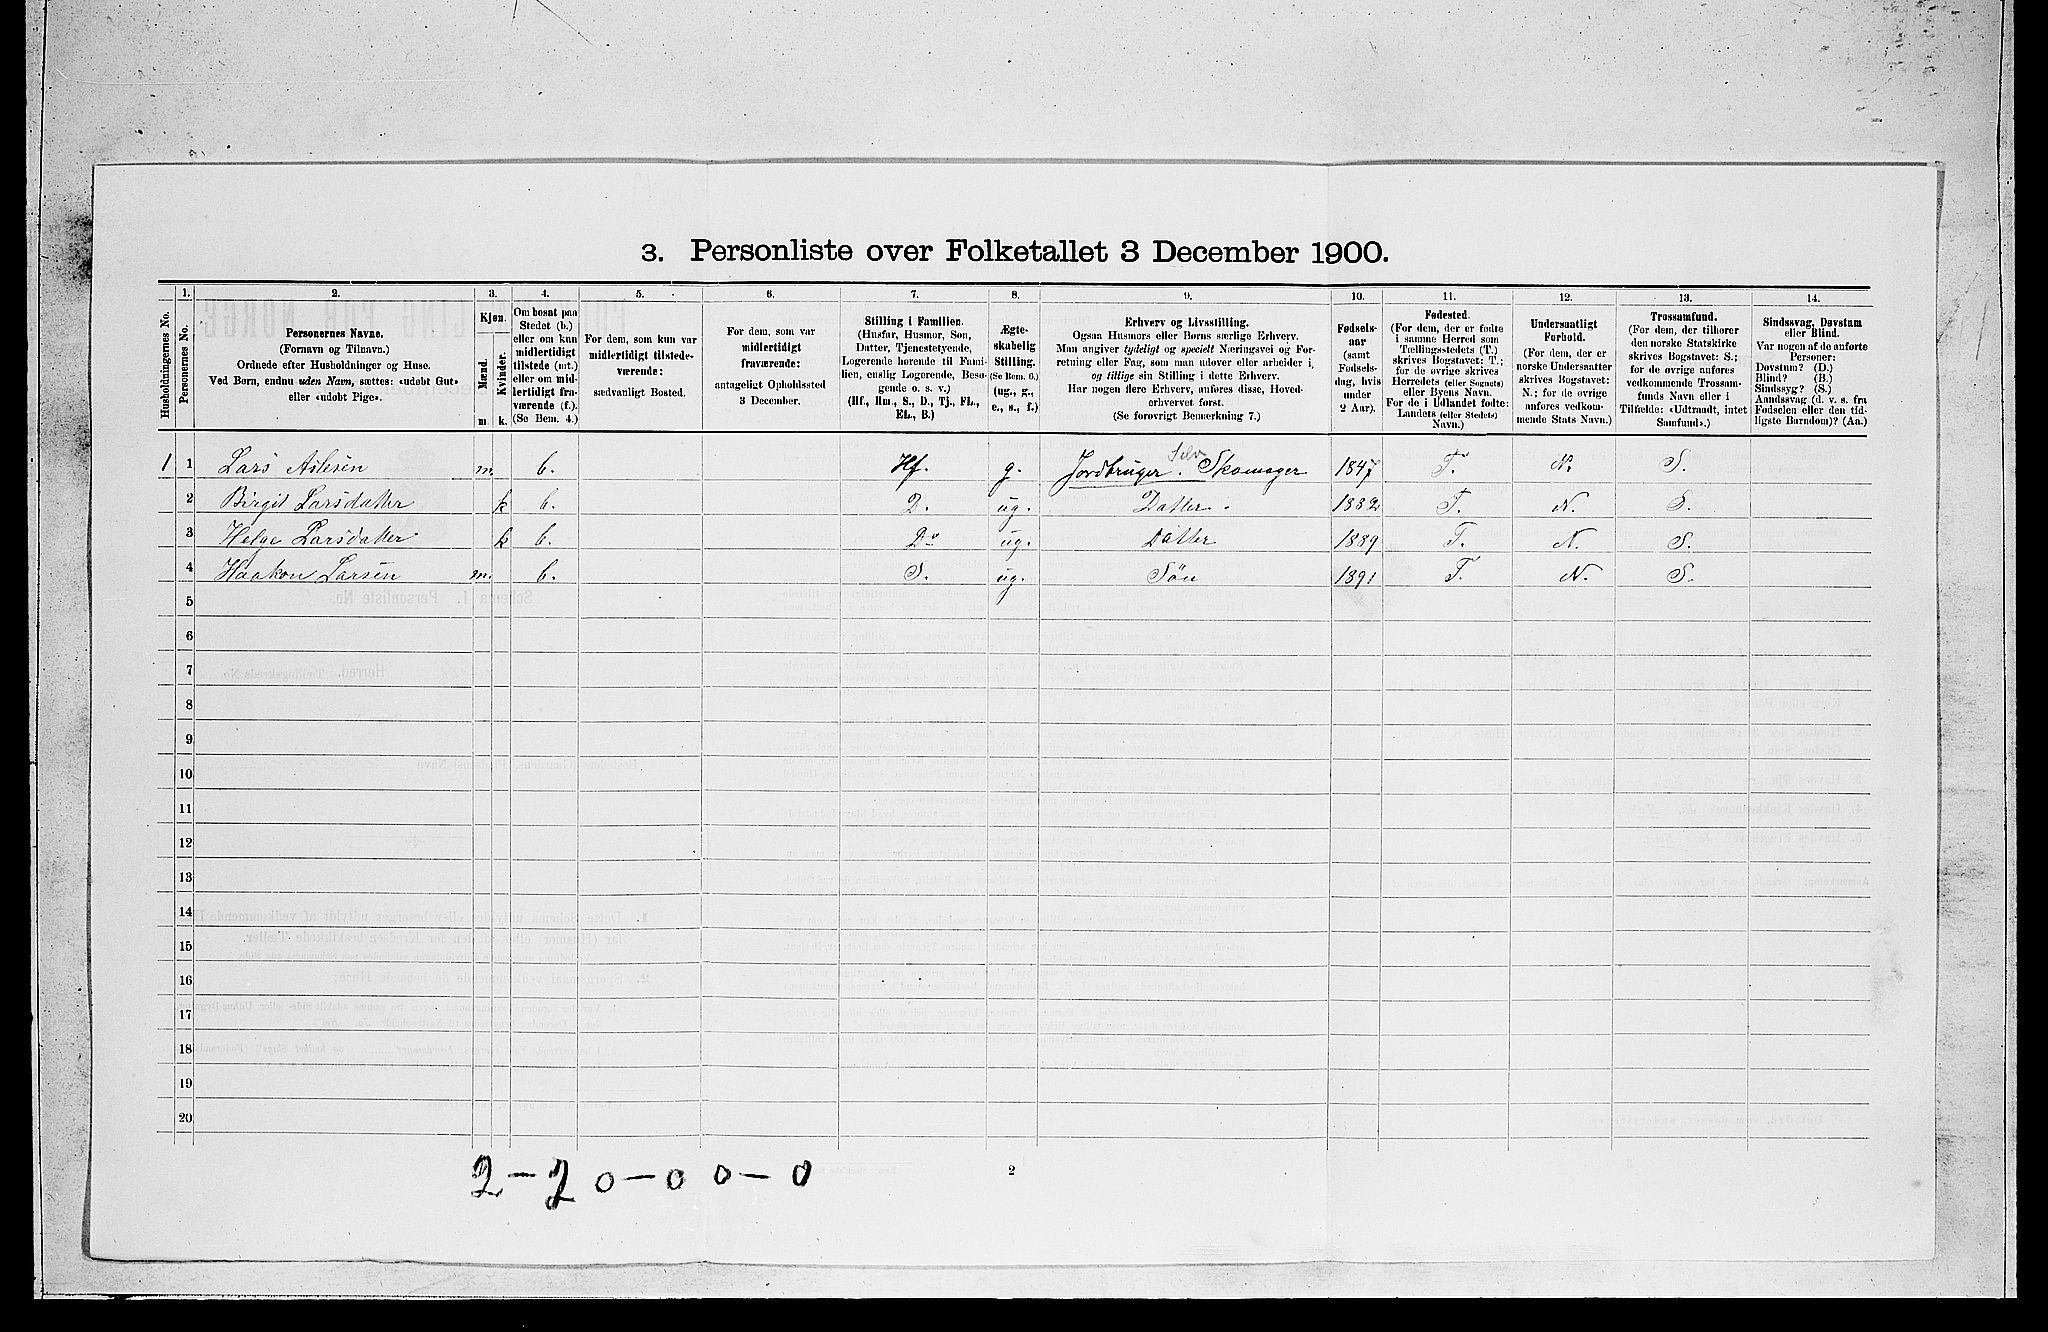 3. Personliste over Folketallet 3 December 1900.
1. 2. 3. 4. 5. 6. 7. 8. 9. 10. 11. 12. 13. 14.
Husholdningernes No.
Personernes No.
Personernes Navne.
(Fornavn og Tilnavn.)
Ordnede efter Husholdninger og Huse.
Ved Børn, endnu uden Navn, sættes: «udøbt Gut»
eller «udøbt Pige».
Kjøn.
Mænd.
Kvinder.
m. k.
Om bosat paa
Stedet (b.)
eller om kun
midlertidigt
tilstede (mt.)
eller om mid-
lertidigt fra-
værende (f.).
(Se Bem. 4.)
For dem, som kun var
midlertidigt tilstede-
værende:
sædvanligt Bosted.
For dem, som var
midlertidigt
fraværende:
antageligt Opholdssted
3 December.
Stilling i Familien.
(Husfar, Husmor, Søn,
Datter, Tjenestetyende,
Logerende hørende til Fami-
lien, enslig Logerende, Besø-
gende o. s. v.)
(Hf., Hm., S., D., Tj., FL.,
EL., B.)
Ægte-
skabelig
Stilling.
(Se Bem. 6.)
(ug., g.,
e., s., f.)
Erhverv og Livsstilling.
Ogsaa Husmors eller Børns særlige Erhverv.
Man angiver tydeligt og specielt Næringsvei og For-
retning eller Fag, som man udøver eller arbeider i,
og tillige sin Stilling i dette Erhverv.
Har nogen flere Erhverv, anføres disse, Hoved-
erhvervet først.
(Se forøvrigt Bemærkning 7.)
Fødsels-
aar
(samt
Fødsels-
dag, hvis
under
2 Aar).
Fødested.
(For dem, der er fødte
i samme Herred som
Tællingsstedets (T.)
skrives Bogstavet: T.;
for de øvrige skrives
Herredets (eller Sognets)
eller Byens Navn.
For de i Udlandet fødte:
Landets (eller Stedets)
Navn.)
Undersaatligt
Forhold.
(For dem, der er
norske Undersaatter
skrives Bogstavet:
N.; for de øvrige
anføres vedkom-
mende Stats Navn.)
Trossamfund.
(For dem, der tilhører
den norske Statskirke
skrives Bogstavet: S.;
for de øvrige anføres
vedkommende Trossam-
funds Navn eller i
Tilfælde: «Udtraadt, intet
Samfund».)
Sindssvag, Døvstum
eller Blind.
Var nogen af de anførte
Personer:
Døvstum? (D.)
Blind? (B.)
Sindssyg? (S.)
Aandssvag (d. v. s. fra
Fødselen eller den tid-
ligste Barndom)? (Aa.)
1 1 Lars Aslesen m. b. Hf. g. Jordbruger. Selv Skomager 1847 T. N. S.
2 Birgit Larsdatter k b. D. ug. Datter. 1882 T. N. S.
3 Helge Larsdatter k b. Do ug. Datter 1889 T. N. S.
4 Haakon Larsen m. b. S. ug. Søn 1891 T. N. S.
5
6
7
8
9
10
11
12
13
14
15
16
17
18
19
20
2-20-00-0
2